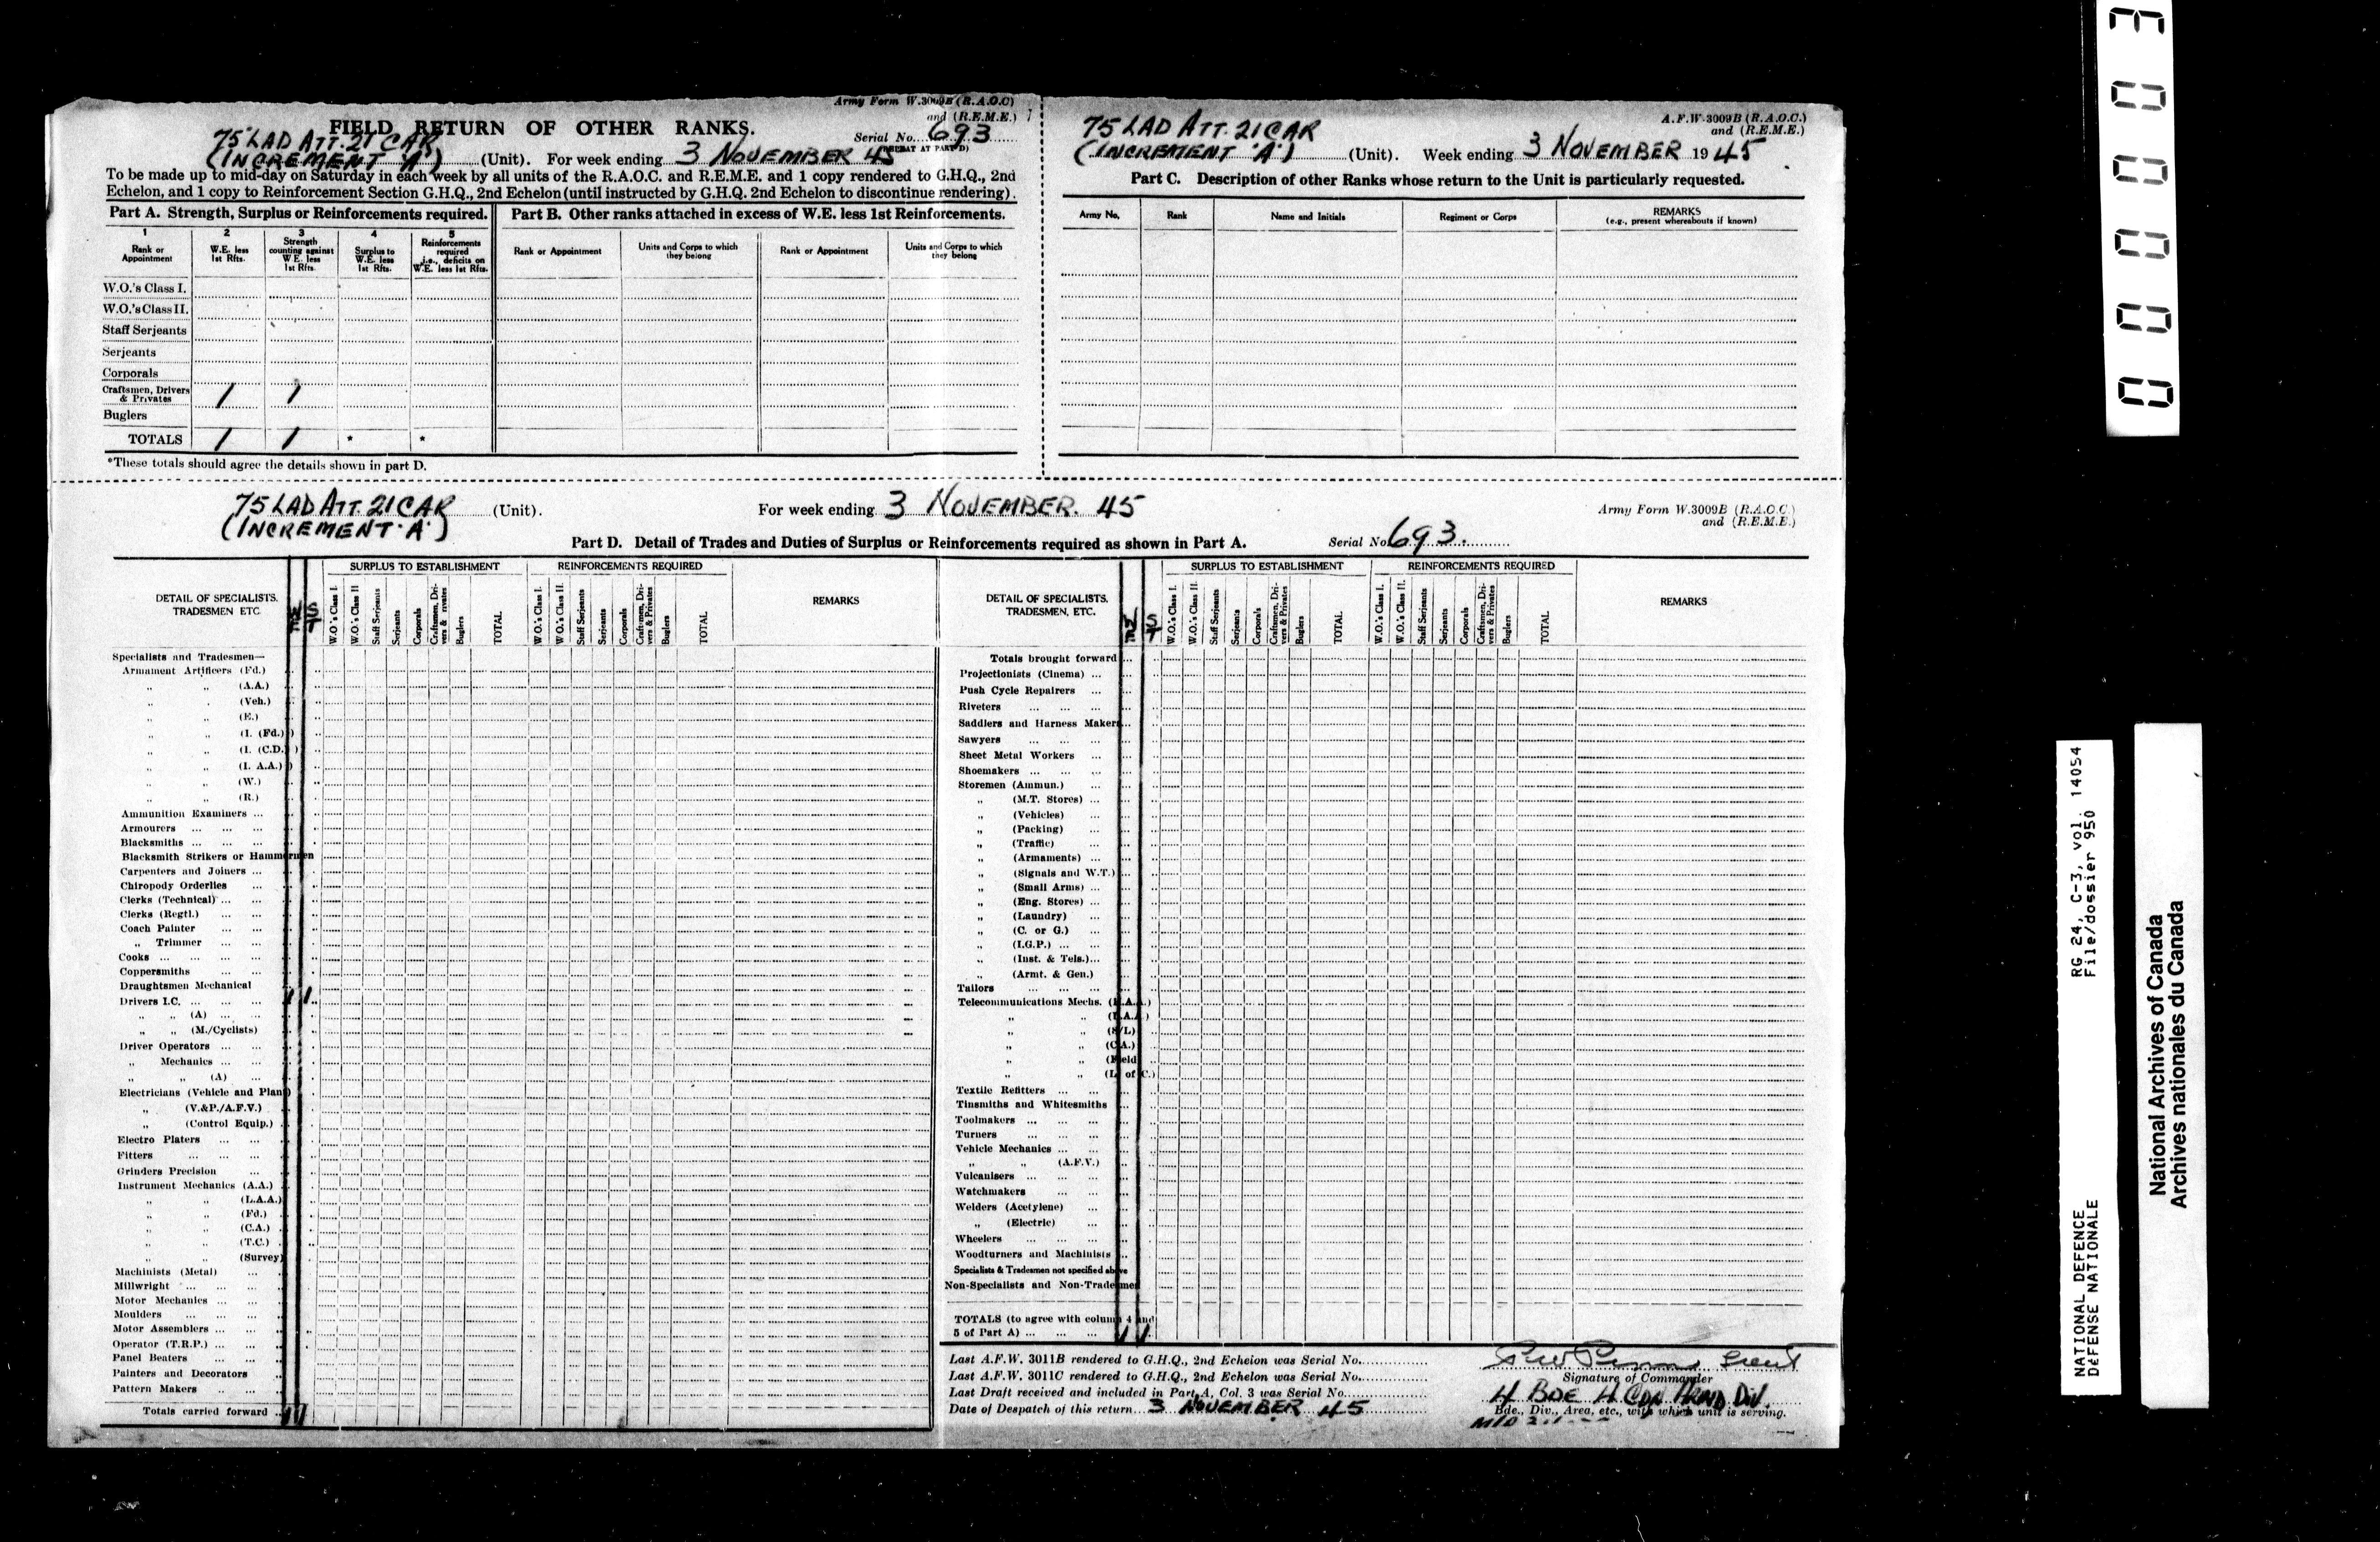 Army Form W.3009B (R.A.O.C)
and (R.E.M.E.)
FIELD RETURN OF OTHER RANKS.
Serial No. 693
(REPEAT AT PART D)
75 LAD ATT. 21 CAR
(INCREMENT 'A') (Unit). For week ending 3 NOVEMBER 45
To be made up to mid-day on Saturday in each week by all units of the R.A.O.C. and R.E.M.E. and 1 copy rendered to G.H.Q., 2nd
Echelon, and 1 copy to Reinforcement Section G.H.Q., 2nd Echelon (until instructed by G.H.Q. 2nd Echelon to discontinue rendering).
Part A. Strength, Surplus or Reinforcements required.
1 2 3 4 5
Rank or Appointment
W.E. less 1st Rfts.
Strength counting against W.E. less 1st Rfts.
Surplus to W.E. less 1st Rfts.
Reinforcements required i.e., deficits on W.E. less 1st Rfts.
W.O.'s Class I.
W.O.'s Class II.
Staff Serjeants
Serjeants
Corporals
Craftsmen, Drivers & Privates 1 1
Buglers
TOTALS 1 1 * *
*These totals should agree the details shown in part D.
Part B. Other ranks attached in excess of W.E. less 1st Reinforcements.
Rank or Appointment
Units and Corps to which they belong
Rank or Appointment
Units and Corps to which they belong
A.F.W. 3009B (R.A.O.C.)
and (R.E.M.E.)
75 LAD ATT. 21 CAR
(INCREMENT 'A') (Unit). Week ending 3 NOVEMBER 1945
Part C. Description of other Ranks whose return to the Unit is particularly requested.
Army No. Rank Name and Initials Regiment or Corps REMARKS
(e.g., present whereabouts if known)
75 LAD ATT. 21 CAR (Unit). For week ending 3 NOVEMBER. 45
(INCREMENT 'A')
Army Form W.3009B (R.A.O.C.)
and (R.E.M.E.)
Part D. Detail of Trades and Duties of Surplus or Reinforcements required as shown in Part A. Serial No. 693.
DETAIL OF SPECIALISTS. TRADESMEN ETC.
SURPLUS TO ESTABLISHMENT
W.O.'s Class I.
W.O.'s Class II
Staff Serjeants
Serjeants
Corporals
Craftsmen, Drivers & Privates
Buglers
TOTAL
REINFORCEMENTS REQUIRED
W.O.'s Class I.
W.O.'s Class II.
Staff Serjeants
Serjeants
Corporals
Craftsmen, Drivers & Privates
Buglers
TOTAL
REMARKS
Specialists and Tradesmen—
Armament Artificers (Fd.)
„ „ (A.A.)
„ „ (Veh.)
„ „ (E.)
„ „ (I. (Fd.))
„ „ (I. (C.D.))
„ „ (I. A.A.)
„ „ (W.)
„ „ (R.)
Ammunition Examiners ...
Armourers ... ... ...
Blacksmiths ... ... ...
Blacksmith Strikers or Hammermen
Carpenters and Joiners ...
Chiropody Orderlies ...
Clerks (Technical) ... ...
Clerks (Regtl.) ... ...
Coach Painter ... ...
„ Trimmer ... ...
Cooks ... ... ... ...
Coppersmiths ... ...
Draughtsmen Mechanical
Drivers I.C. ... ... ... 1 1
„ „ (A) ... ...
„ „ (M./Cyclists)
Driver Operators ... ...
„ Mechanics ... ...
„ „ (A) ...
Electricians (Vehicle and Plant)
„ (V.&P./A.F.V.)
„ (Control Equip.)
Electro Platers ... ...
Fitters ... ... ...
Grinders Precision ...
Instrument Mechanics (A.A.)
„ „ (L.A.A.)
„ „ (Fd.)
„ „ (C.A.)
„ „ (T.C.)
„ „ (Survey)
Machinists (Metal) ...
Millwright ... ... ...
Motor Mechanics ... ...
Moulders ... ... ...
Motor Assemblers ... ...
Operator (T.R.P.) ... ...
Panel Beaters ... ...
Painters and Decorators
Pattern Makers ... ...
Totals carried forward ... 1 1
DETAIL OF SPECIALISTS. TRADESMEN, ETC.
SURPLUS TO ESTABLISHMENT
W.O.'s Class I.
W.O.'s Class II.
Staff Serjeants
Serjeants
Corporals
Craftsmen, Drivers & Privates
Buglers
TOTAL
REINFORCEMENTS REQUIRED
W.O.'s Class I.
W.O.'s Class II.
Staff Serjeants
Serjeants
Corporals
Craftsmen, Drivers & Privates
Buglers
TOTAL
REMARKS
Totals brought forward ...
Projectionists (Cinema) ...
Push Cycle Repairers ...
Riveters ... ... ...
Saddlers and Harness Makers
Sawyers ... ... ...
Sheet Metal Workers ...
Shoemakers ... ... ...
Storemen (Ammun.) ...
„ (M.T. Stores) ...
„ (Vehicles) ...
„ (Packing) ...
„ (Traffic) ...
„ (Armaments) ...
„ (Signals and W.T.)
„ (Small Arms) ...
„ (Eng. Stores) ...
„ (Laundry) ...
„ (C. or G.) ...
„ (I.G.P.) ... ...
„ (Inst. & Tels.) ...
„ (Armt. & Gen.)
Tailors ... ... ...
Telecommunications Mechs. (H.A.A.)
„ „ (L.A.A.)
„ „ (S/L)
„ „ (C.A.)
„ „ (Field)
„ „ (L. of C.)
Textile Refitters ... ...
Tinsmiths and Whitesmiths
Toolmakers ... ... ...
Turners ... ... ...
Vehicle Mechanics ... ...
„ „ (A.F.V.)
Vulcanisers ... ... ...
Watchmakers ... ...
Welders (Acetylene) ...
„ (Electric) ...
Wheelers ... ... ...
Woodturners and Machinists
Specialists & Tradesmen not specified above
Non-Specialists and Non-Tradesmen
TOTALS (to agree with column 4 and
5 of Part A) ... ... ... 1 1
Last A.F.W. 3011B rendered to G.H.Q., 2nd Echelon was Serial No.
Last A.F.W. 3011C rendered to G.H.Q., 2nd Echelon was Serial No.
Last Draft received and included in Part A, Col. 3 was Serial No.
Date of Despatch of this return 3 NOVEMBER 45
Signature of Commander
4 BDE 4 CDN ARMD DIV.
Bde., Div., Area, etc., with which unit is serving.
00003
NATIONAL DEFENCE RG 24, C-3, vol. 14054
DÉFENSE NATIONALE File/dossier 950
National Archives of Canada
Archives nationales du Canada